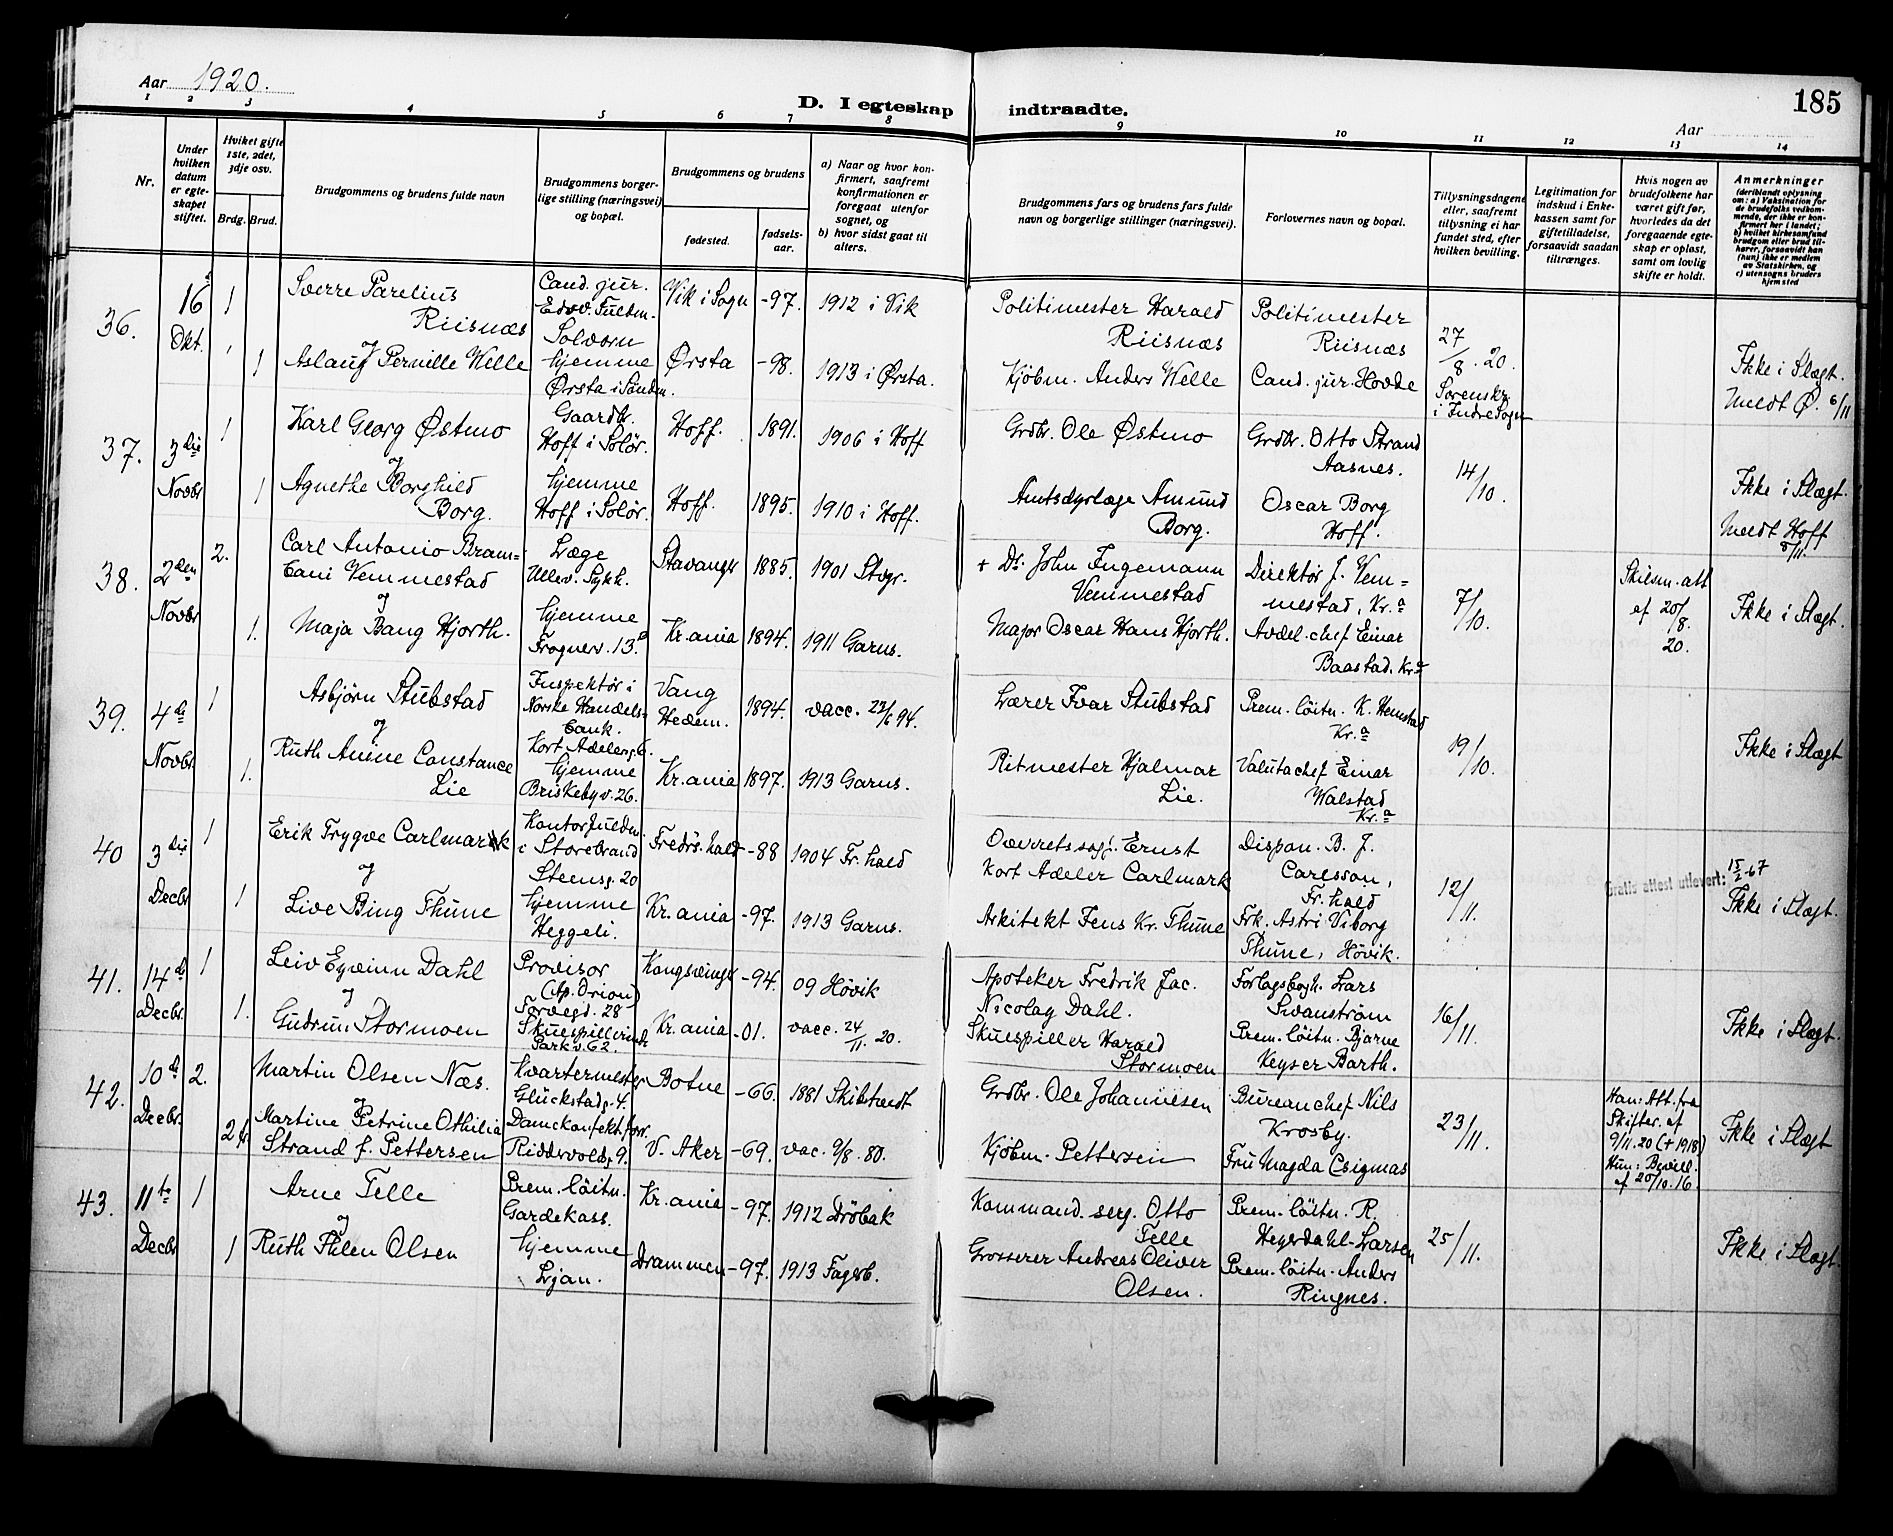 Aar 1920.
D. I egteskap indtraadte.
185
Aar
1 2 3 4 5 6 7 8 9 10 11 12 13 14
Nr.
Under hvilken datum er egteskapet stiftet.
Hvilket gifte 1ste, 2det, 3dje osv.
Brdg. Brud.
Brudgommens og brudens fulde navn
Brudgommens borgerlige stilling (næringsvei) og bopæl.
Brudgommens og brudens
fødested.
fødselsaar.
a) Naar og hvor konfirmert, saafremt konfirmationen er foregaat utenfor sognet, og
b) hvor sidst gaat til alters.
Brudgommens fars og brudens fars fulde navn og borgerlige stillinger (næringsvei).
Forlovernes navn og bopæl.
Tillysningsdagene eller, saafremt tillysning ei har fundet sted, efter hvilken bevilling.
Legitimation for indskud i Enkekassen samt for giftetilladelse, forsaavidt saadan tiltrænges.
Hvis nogen av brudefolkene har været gift før, hvorledes da det foregaaende egteskap er opløst, samt om lovlig skifte er holdt.
Anmerkninger
(deriblandt oplysning om: a) Vaksination for de brudefolks vedkommende, der ikke er konfirmert her i landet; b) hvilket kirkesamfund brudgom eller brud tilhører, forsaavidt han (hun) ikke er medlem av Statskirken, og c) utensogns bruders hjemsted
36. 16 Okt. 1
Sverre Parelius Riisnæs
Cand. jur.
Edsv. Fuldm.
Solvorn
Vik i Sogn -97. 1912 i Vik
Politimester Harald Riisnæs
Politimester Riisnæs
27/8. 20.
Sorenskr. i Indre Sogn
og
1 Aslaug Pernille Welle
hjemme
Ørsta i Søndm.
Ørsta -98. 1913 i Ørsta.
Kjøbm. Anders Welle
Cand. jur. Hovde
Ikke i Slægt.
Meldt Ø. 6/11
37. 3die Novbr 1
Karl Georg Østmo
Gaardbr.
Hoff i Solør.
Hoff. 1891. 1906 i Hoff
Grdbr. Ole Østmo
Grdbr. Otto Strand Aasnes.
14/10.
og
1 Agnethe Borghild Borg.
hjemme
Hoff i Solør.
Hoff. 1895. 1910 i Hoff.
Amtsdyrlæge Amund Borg.
Oscar Borg Hoff.
Ikke i Slægt.
Meldt Hoff 5/11.
38. 2den Novbr 2.
Carl Antonio Bram=
cani Vemmestad
Læge
Ullev. Sykh.
Stavanger 1885. 1901 Stvgr.
+ Dr. John Ingemann Vemmestad
Direktør J. Vem=
mestad, Kr.a
7/10.
Skilsm. att
af 20/8.
20.
og
1. Maja Bang Hjorth.
hjemme
Frognerv. 13.b
Kr.ania 1894. 1911 Garns.
Major Oscar Hans Hjorth.
Avdel. chef Einar Baastad. Kr.a
Ikke i Slægt.
39. 4de Novbr. 1
Asbjørn Stubstad
Inspektør i
Norske Handels=
bank.
Kort Adelersg. 6.
Vang Hedem. 1894. vacc. 23/6 94.
Lærer Ivar Stubstad
Prem. løitn. K. Hemstad Kr.a
19/10.
og
1. Ruth Anine Constance Lie
hjemme
Briskebyv. 26.
Kr.ania 1897. 1913 Garns.
Ritmester Hjalmar Lie.
Valutachef Einar Walstad Kr.a
Ikke i Slægt
40 3die Decbr 1
Erik Trygve Carlmark
Kontorfuldm.
i Storebrand
Steensg. 20
Fredrs.hald -88 1904 Fr.hald
Overretssagf. Ernst
Kort Adeler Carlmark
Dispon. B. J. Carlsson, Fr.hald
12/11.
Gratis attest utlevert: 15/2-67
og
1 Live Bing Thune
hjemme
Heggeli.
Kr.ania -97. 1913 Garns.
Arkitekt Jens Kr. Thune
Frk. Astri Viborg Thune, Høvik.
Ikke i Slægt.
41. 14de Decbr. 1
Leiv Eyvinn Dahl
Provisor
(Ap. Orion)
Torvegd. 28
Kongsvinger -94. 09 Høvik
Apoteker Fredrik Jac.
Nicolay Dahl.
Forlagsbogh. Lars Swanstrøm
16/11.
og
1. Gudrun Stormoen
Skuespillerinde
Parkv. 62.
Kr.ania -01. vacc. 24/11. 20.
Skuespiller Harald Stormoen
Prem. løitn. Bjarne Keyser Barth.
Ikke i Slægt.
42. 10de Decbr. 2.
Martin Olsen Næs.
Kvartermester
Glückstadg. 4.
Botne -66. 1881 Skibtvedt
Grdbr. Ole Johannesen
Bureauchef Nils Krosby.
23/11.
Han: Att. fra
Skifter. af
9/11. 20 (+ 1918)
Hun: Bevill.
af 20/10. 16.
og
2
Martine Petrine Othilia
Strand f. Pettersen
Damekonfekt.forr.
Riddervoldsg. 9.
V. Aker -69. vac. 9/8. 80.
Kjøbm. Pettersen
Fru Magda Csigmas
Ikke i Slægt
43. 11te Decbr 1
Arne Telle
Prem. løitn.
Gardekass.
Kr.ania -97. 1912 Drøbak
Kommand. serg. Otto Telle
Prem. løitn. R. Heyerdahl-Larsen
25/11.
og
1 Ruth Thlen Olsen
hjemme
Ljan.
Drammen -97. 1913 Fagerb.
Grosserer Andreas Oliver Olsen.
Prem. løitn. Anders Ringnes.
Ikke i Slægt.